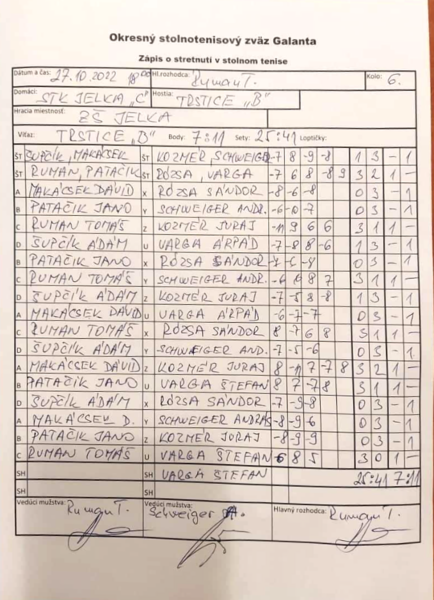 Okresný stolnotenisový zväz Galanta
Zápis o stretnutí v stolnom tenise
Dátum a čas: 27.10.2022 18:00 Hl.rozhodca: Ruman T. Kolo: 6.
Domáci: STK JELKA „C" Hostia: TRSTICE „B"
Hracia miestnosť: ZŠ JELKA
Víťaz: TRSTICE Body: 7:11 Sety: 25:41 Loptičky:
ŠT ŠUPČÍK, MAKÁCSEK ŠT KOZMÉR, SCHWEIGER -7 8 -9 -8 1 3 - 1
ŠT RUMAN, PATAČIK ŠT RÓZSA, VARGA -7 6 8 -8 9 3 2 1 -
A MAKÁCSEK DÁVID X RÓZSA SÁNDOR -8 -6 -8 0 3 - 1
B PATAČIK JANO Y SCHWEIGER ANDR. -6 -0 -7 0 3 - 1
C RUMAN TOMÁŠ Z KOZMÉR JURAJ -11 9 6 6 3 1 1 -
D ŠUPČÍK ÁDÁM U VARGA ÁRPÁD -7 -8 8 -6 1 3 - 1
B PATAČIK JANO X RÓZSA SÁNDOR 0 3 - 1
C RUMAN TOMÁŠ Y SCHWEIGER ANDR. -6 6 8 7 3 1 1 -
D ŠUPČÍK ÁDÁM Z KOZMÉR JURAJ -7 -5 8 -8 1 3 - 1
A MAKÁCSEK DÁVID U VARGA ÁRPÁD -6 -7 -7 0 3 - 1
C RUMAN TOMÁŠ X RÓZSA SÁNDOR 8 -7 6 8 3 1 1 -
D ŠUPČÍK ÁDÁM Y SCHWEIGER AND. -7 -5 -6 0 3 - 1
A MAKÁCSEK DÁVID Z KOZMÉR JURAJ 8 -11 7 -7 8 3 2 1
B PATAČIK JANO U VARGA ŠTEFAN 8 7 -7 8 3 1 1 -
D ŠUPČÍK ÁDÁM X RÓZSA SÁNDOR -7 -9 -8 0 3 - 1
A MAKÁCSEK D. Y SCHWEIGER ANDRÁS -8 -9 6 0 3 - 1
B PATAČIK JANO Z KOZMÉR JURAJ -8 -9 9 0 3 - 1
C RUMAN TOMÁŠ U VARGA ŠTEFAN 6 8 5 3 0 1 -
SH SH VARGA ŠTEFAN 25:41 7:11
SH SH
Vedúci mužstva: Ruman T. Vedúci mužstva: Schweiger A. Hlavný rozhodca: Ruman T.